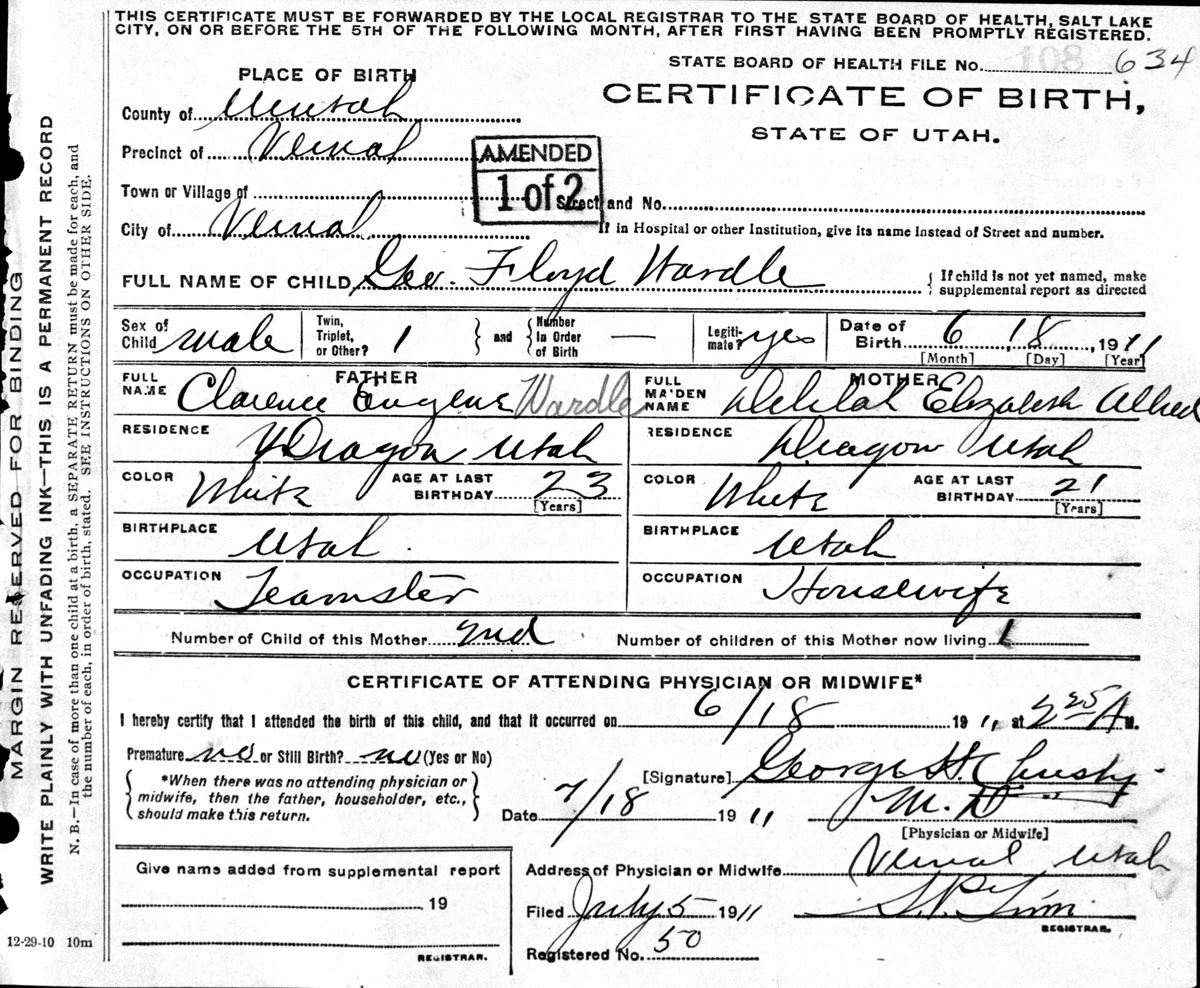 THIS CERTIFICATE MUST BE FORWARDED BY THE LOCAL REGISTRAR TO THE STATE BOARD OF HEALTH, SALT LAKE
CITY, ON OR BEFORE THE 5TH OF THE FOLLOWING MONTH, AFTER FIRST HAVING BEEN PROMPTLY REGISTERED.
108
STATE BOARD OF HEALTH FILE No. 634
PLACE OF BIRTH
CERTIFICATE OF BIRTH,
STATE OF UTAH.
County of Uintah
Precinct of Vernal
AMENDED
1 of 2
Town or Village of Street and No.
City of Vernal If in Hospital or other Institution, give its name instead of Street and number.
FULL NAME OF CHILD Geo. Floyd Wardle { If child is not yet named, make
supplemental report as directed
Sex of Child male Twin, Triplet, or Other? 1 } and { Number In Order of Birth — Legiti-mate? yes Date of Birth 6 18, 1911
[Month] [Day] [Year]
FATHER MOTHER
FULL NAME Clarence Eugene Wardle FULL MAIDEN NAME Delilah Elizabeth Allred
RESIDENCE Dragon Utah RESIDENCE Dragon Utah
COLOR White AGE AT LAST BIRTHDAY 23 [Years] COLOR White AGE AT LAST BIRTHDAY 21 [Years]
BIRTHPLACE Utah BIRTHPLACE Utah
OCCUPATION Teamster OCCUPATION Housewife
Number of Child of this Mother 2nd Number of children of this Mother now living 1
CERTIFICATE OF ATTENDING PHYSICIAN OR MIDWIFE*
I hereby certify that I attended the birth of this child, and that it occurred on 6/18 1911 at 2 25 A M.
Premature no or Still Birth? no (Yes or No)
{ *When there was no attending physician or
midwife, then the father, householder, etc.,
should make this return. }
[Signature] George H. Christy
Date 7/18 1911 M. D.
[Physician or Midwife]
Give name added from supplemental report
19
REGISTRAR.
Address of Physician or Midwife Vernal Utah
Filed July 5 1911
REGISTRAR.
Registered No. 50
12-29-10 10m
MARGIN RESERVED FOR BINDING
WRITE PLAINLY WITH UNFADING INK—THIS IS A PERMANENT RECORD
N. B.—In case of more than one child at a birth, a SEPARATE RETURN must be made for each, and
the number of each, in order of birth, stated. SEE INSTRUCTIONS ON OTHER SIDE.